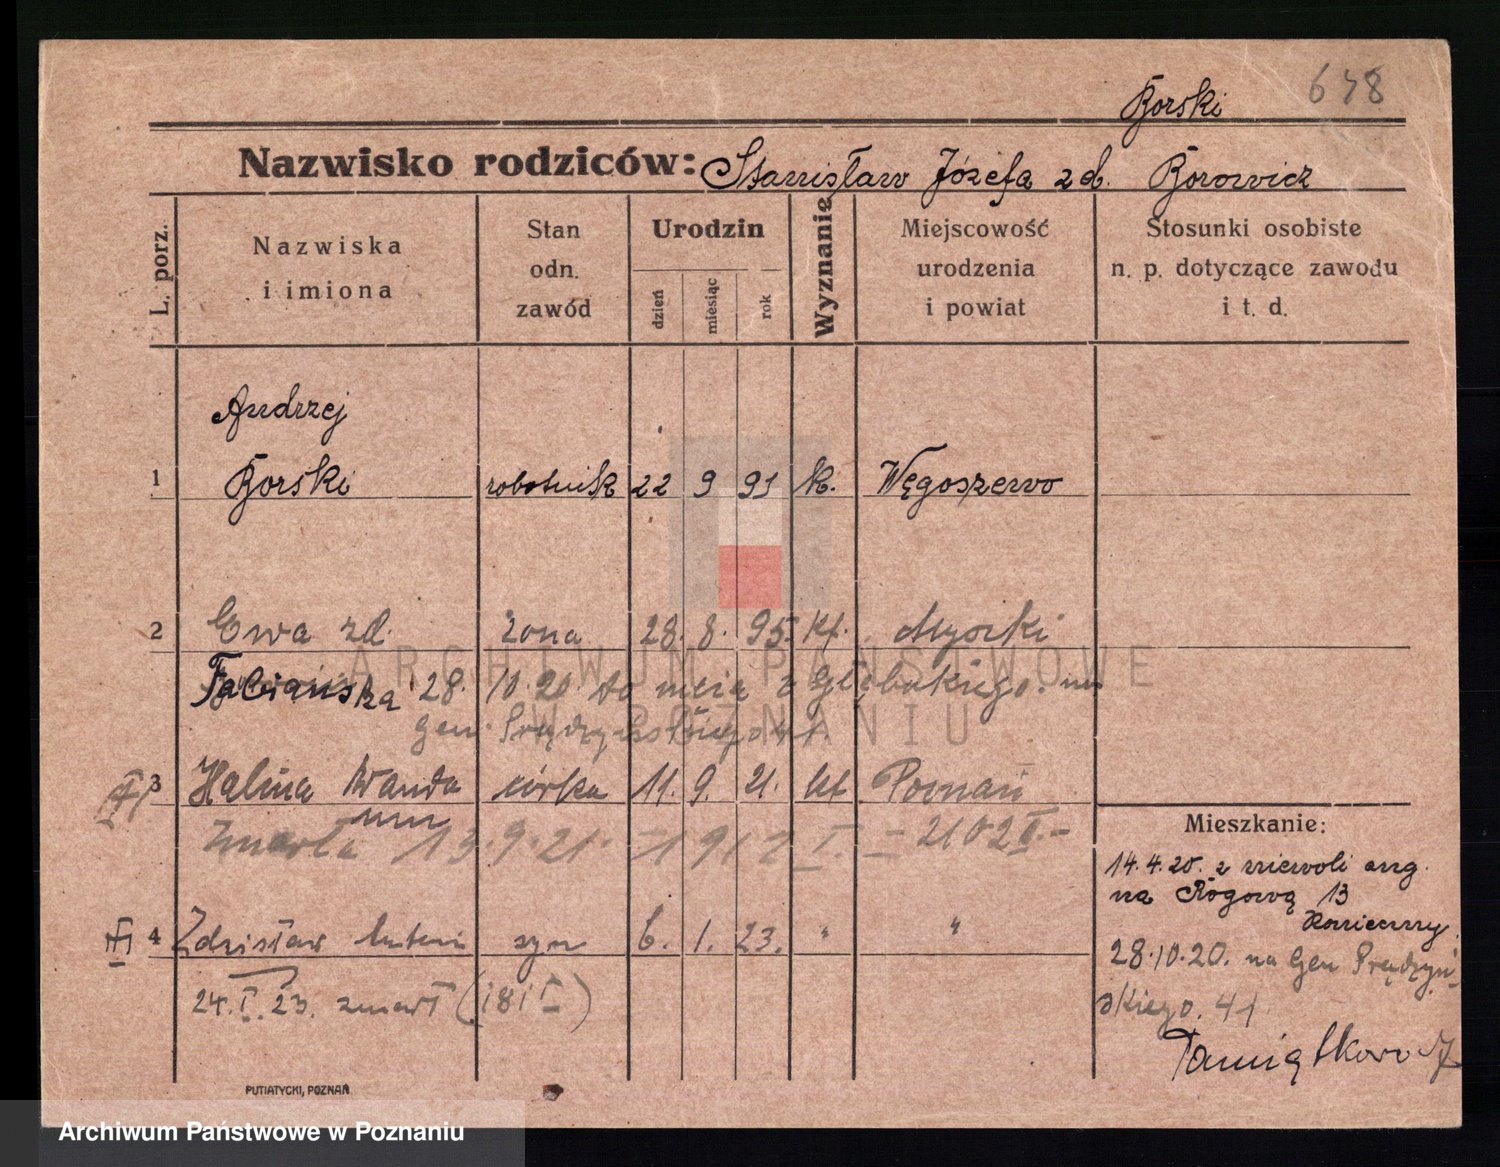 Borski 648
Nazwisko rodziców: Stanisław Józefa zd. Borowicz
L. porz.
Nazwiska
i imiona
Stan
odn.
zawód
Urodzin
dzień
miesiąc
rok
Wyznanie
Miejscowość
urodzenia
i powiat
Stosunki osobiste
n. p. dotyczące zawodu
i t. d.
Andrzej
1 Borski robotnik 22 9 91 k. Węgoszewo
2 Ewa zd. żona 28. 8. 95. kt. Myszki
Fabiańska 28. 10.20. do męża z Głębokiego. na
gen. Prądzyńskiego 41
3 Halina Wanda córka 11. 9. 21. kt Poznań
zmarła 13.9.21.
4 Zdzisław Antoni syn 6. 1. 23. " "
24.I.23. zmarł (181 I)
Mieszkanie:
14.4.20. z niewoli ang.
na Rogową 13
Konieczny
28.10.20. na Gen Prądzyń
skiego. 41
PUTIATYCKI, POZNAŃ
ARCHIWUM PAŃSTWOWE
W POZNANIU
Archiwum Państwowe w Poznaniu